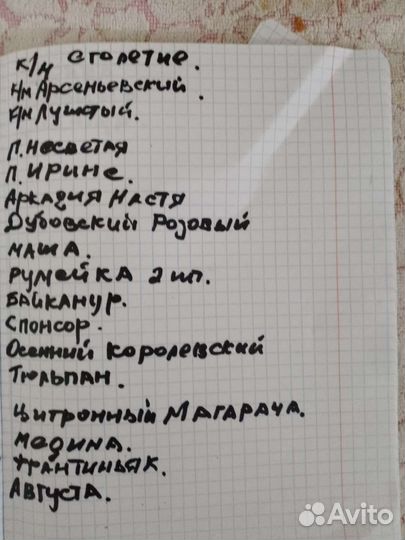 к/м столетие.
к/м Арсеньевский
к/м Пушистый.
П. Несветая
П. Ирине.
Аркадия Настя
Дубовский Розовый
Маша.
Румейка 2 шт.
Байканур.
Спонсор.
Осенний Королевский
Тюльпан.
Цитронный Магарача.
Медина.
Франтиньяк.
Августа.
Avito